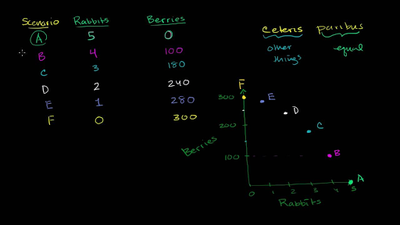 Scenario Rabbits Berries
A 5 0
B 4 100
C 3 180
D 2 240
E 1 280
F 0 300
Ceteris paribus
other things equal
F
300
E
D
200
C
Berries
100
B
A
0 1 2 3 4 5
Rabbits